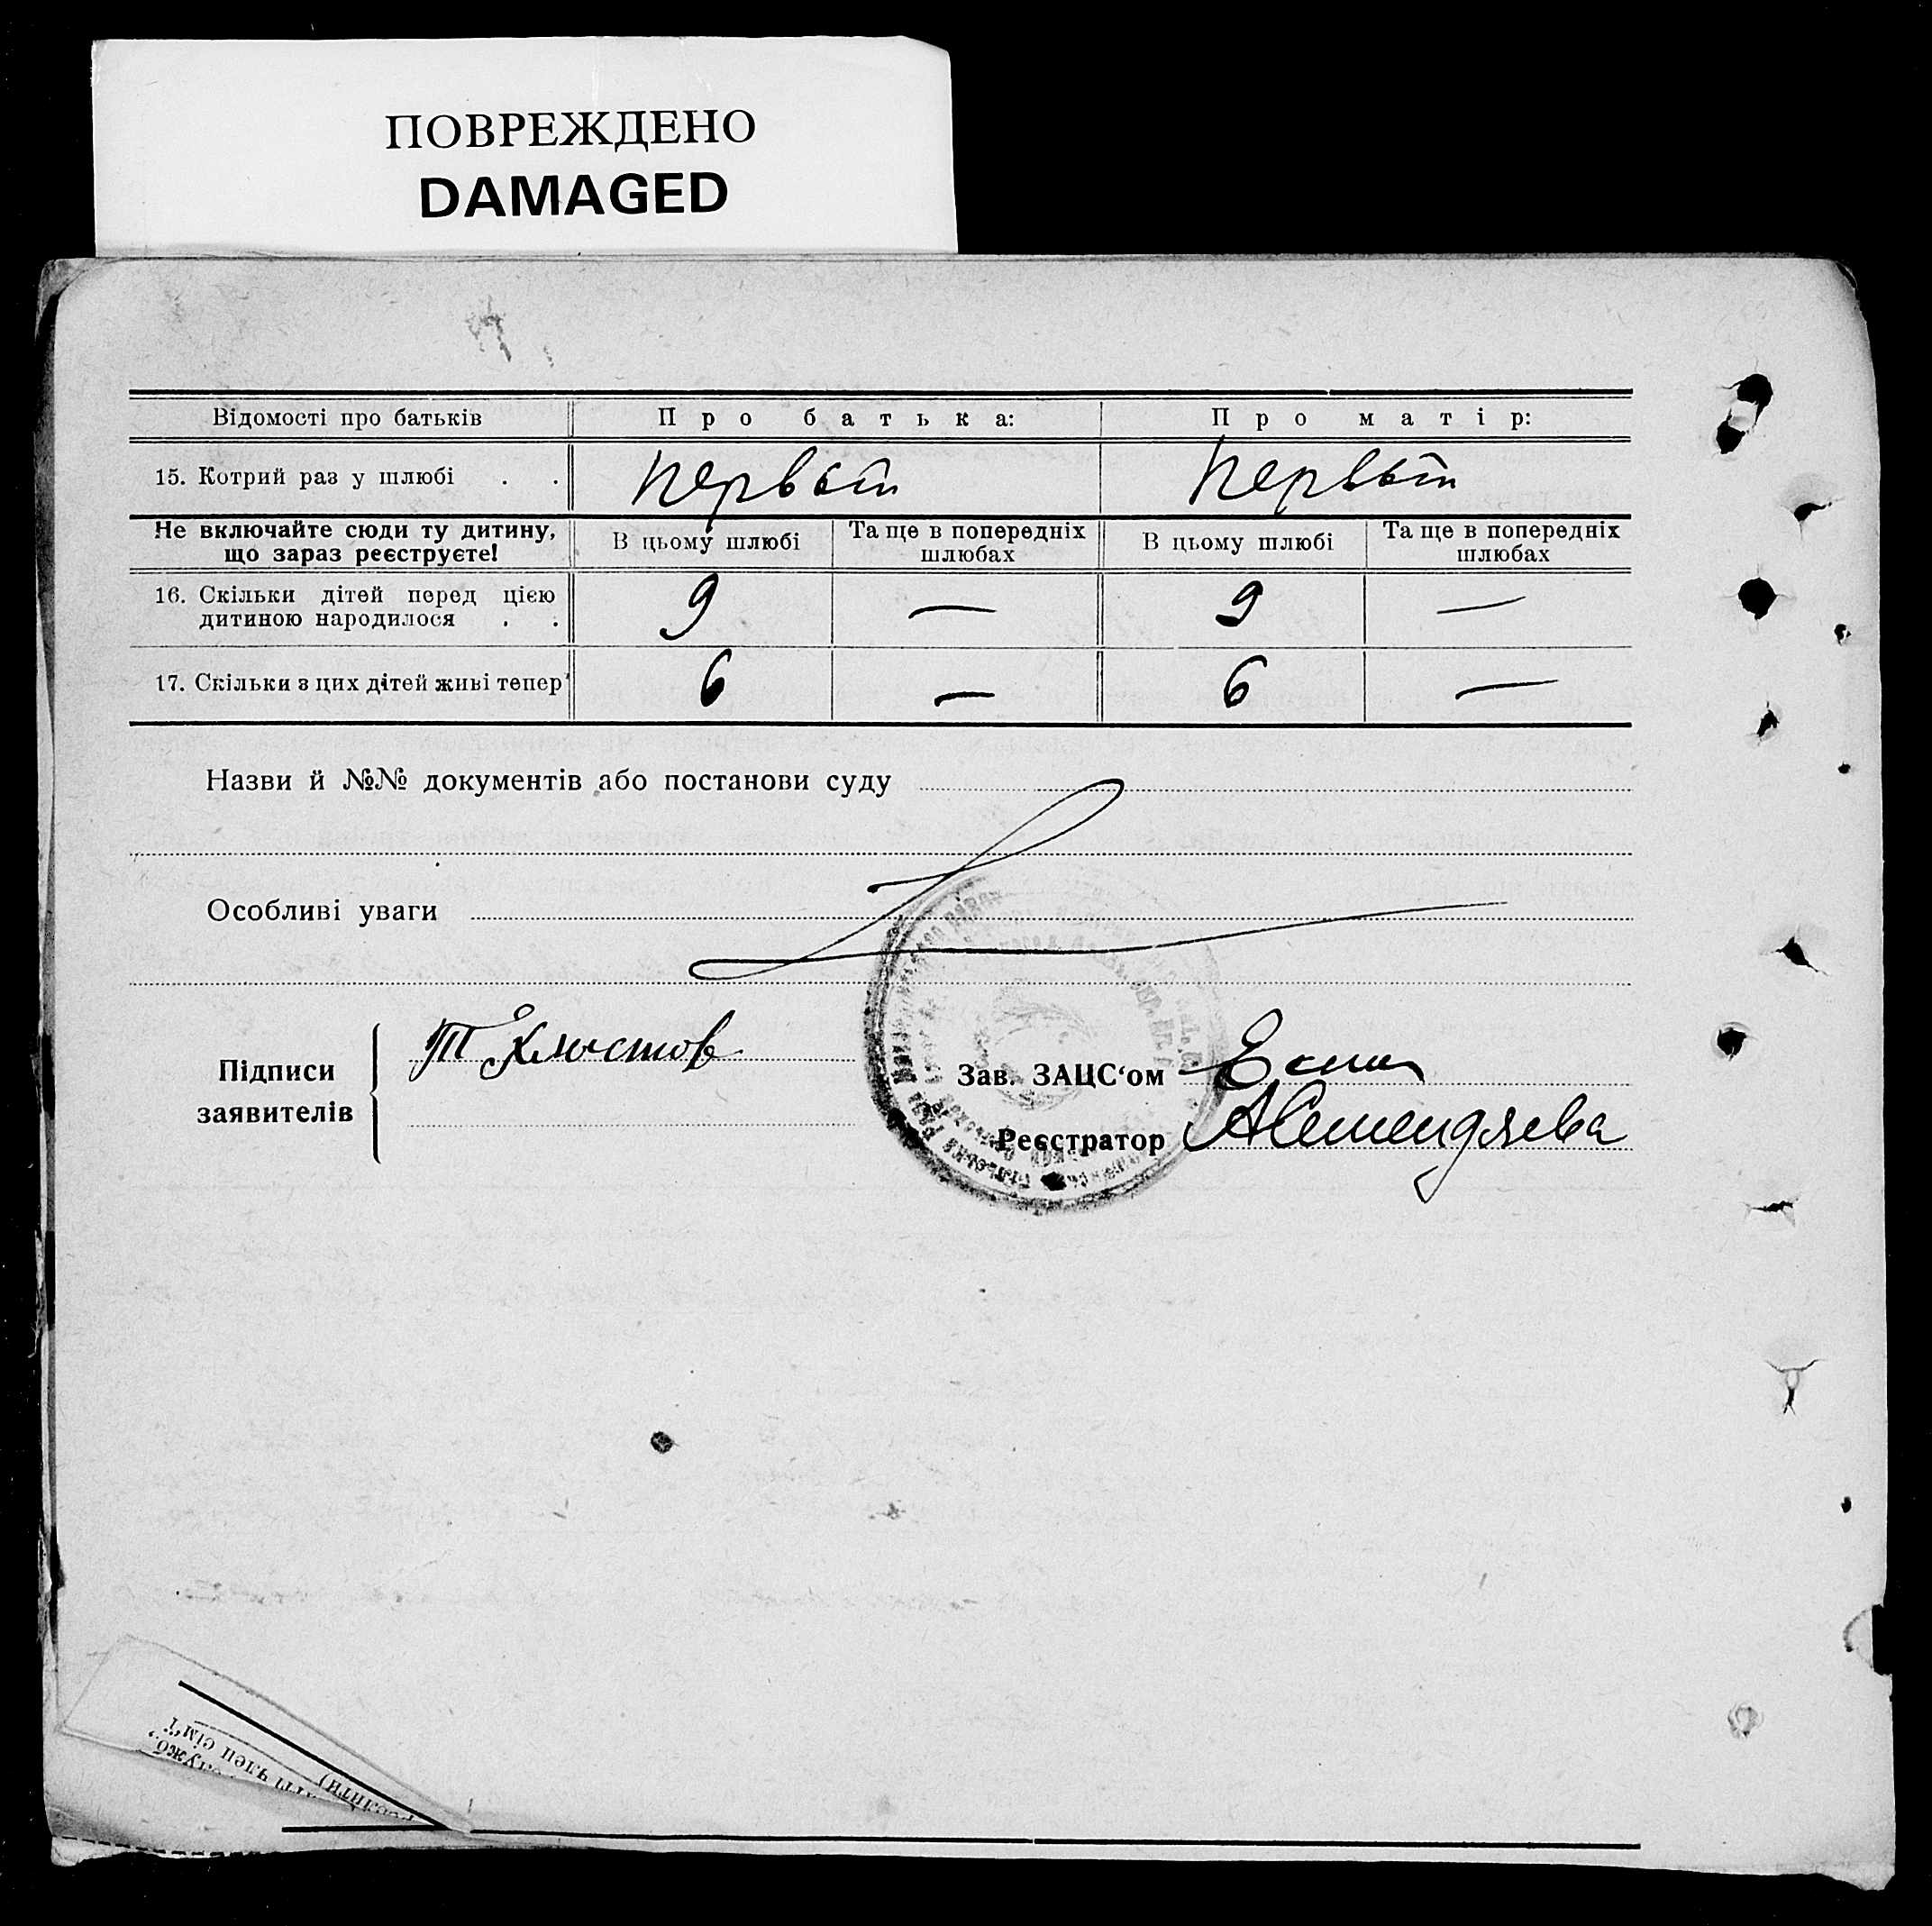 ПОВРЕЖДЕНО
DAMAGED
Відомості про батьків Про батька: Про матір:
15. Котрий раз у шлюбі . . Первый Первый
Не включайте сюди ту дитину, що зараз реєструєте! В цьому шлюбі Та ще в попередніх шлюбах В цьому шлюбі Та ще в попередніх шлюбах
16. Скільки дітей перед цією
дитиною народилося . . 9 — 9 —
17. Скільки з цих дітей живі тепер 6 — 6 —
Назви й №№ документів або постанови суду
Особливі уваги
Підписи
заявителів
Т Хлыстов
Зав. ЗАЦС‘ом
Реєстратор
член сім’ї